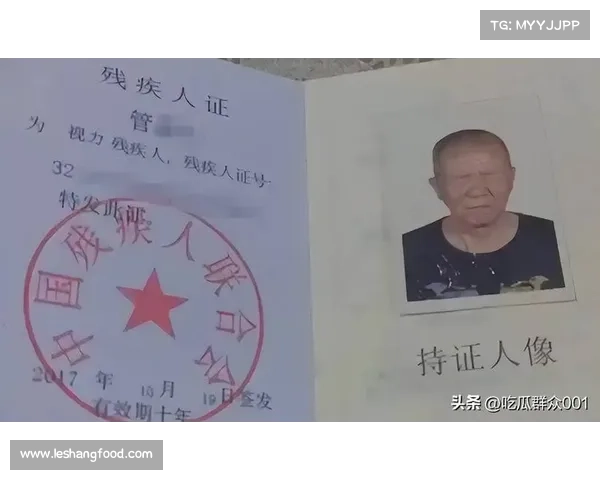 TG: MYYJJPP
残疾人证
管
为 视力 残疾人，残疾人证号
32
特发此证。
中国残疾人联合会
2017 年 10 月 19 日签发
有效期十年
持证人像
头条 @吃瓜群众001
www.leshangfood.com